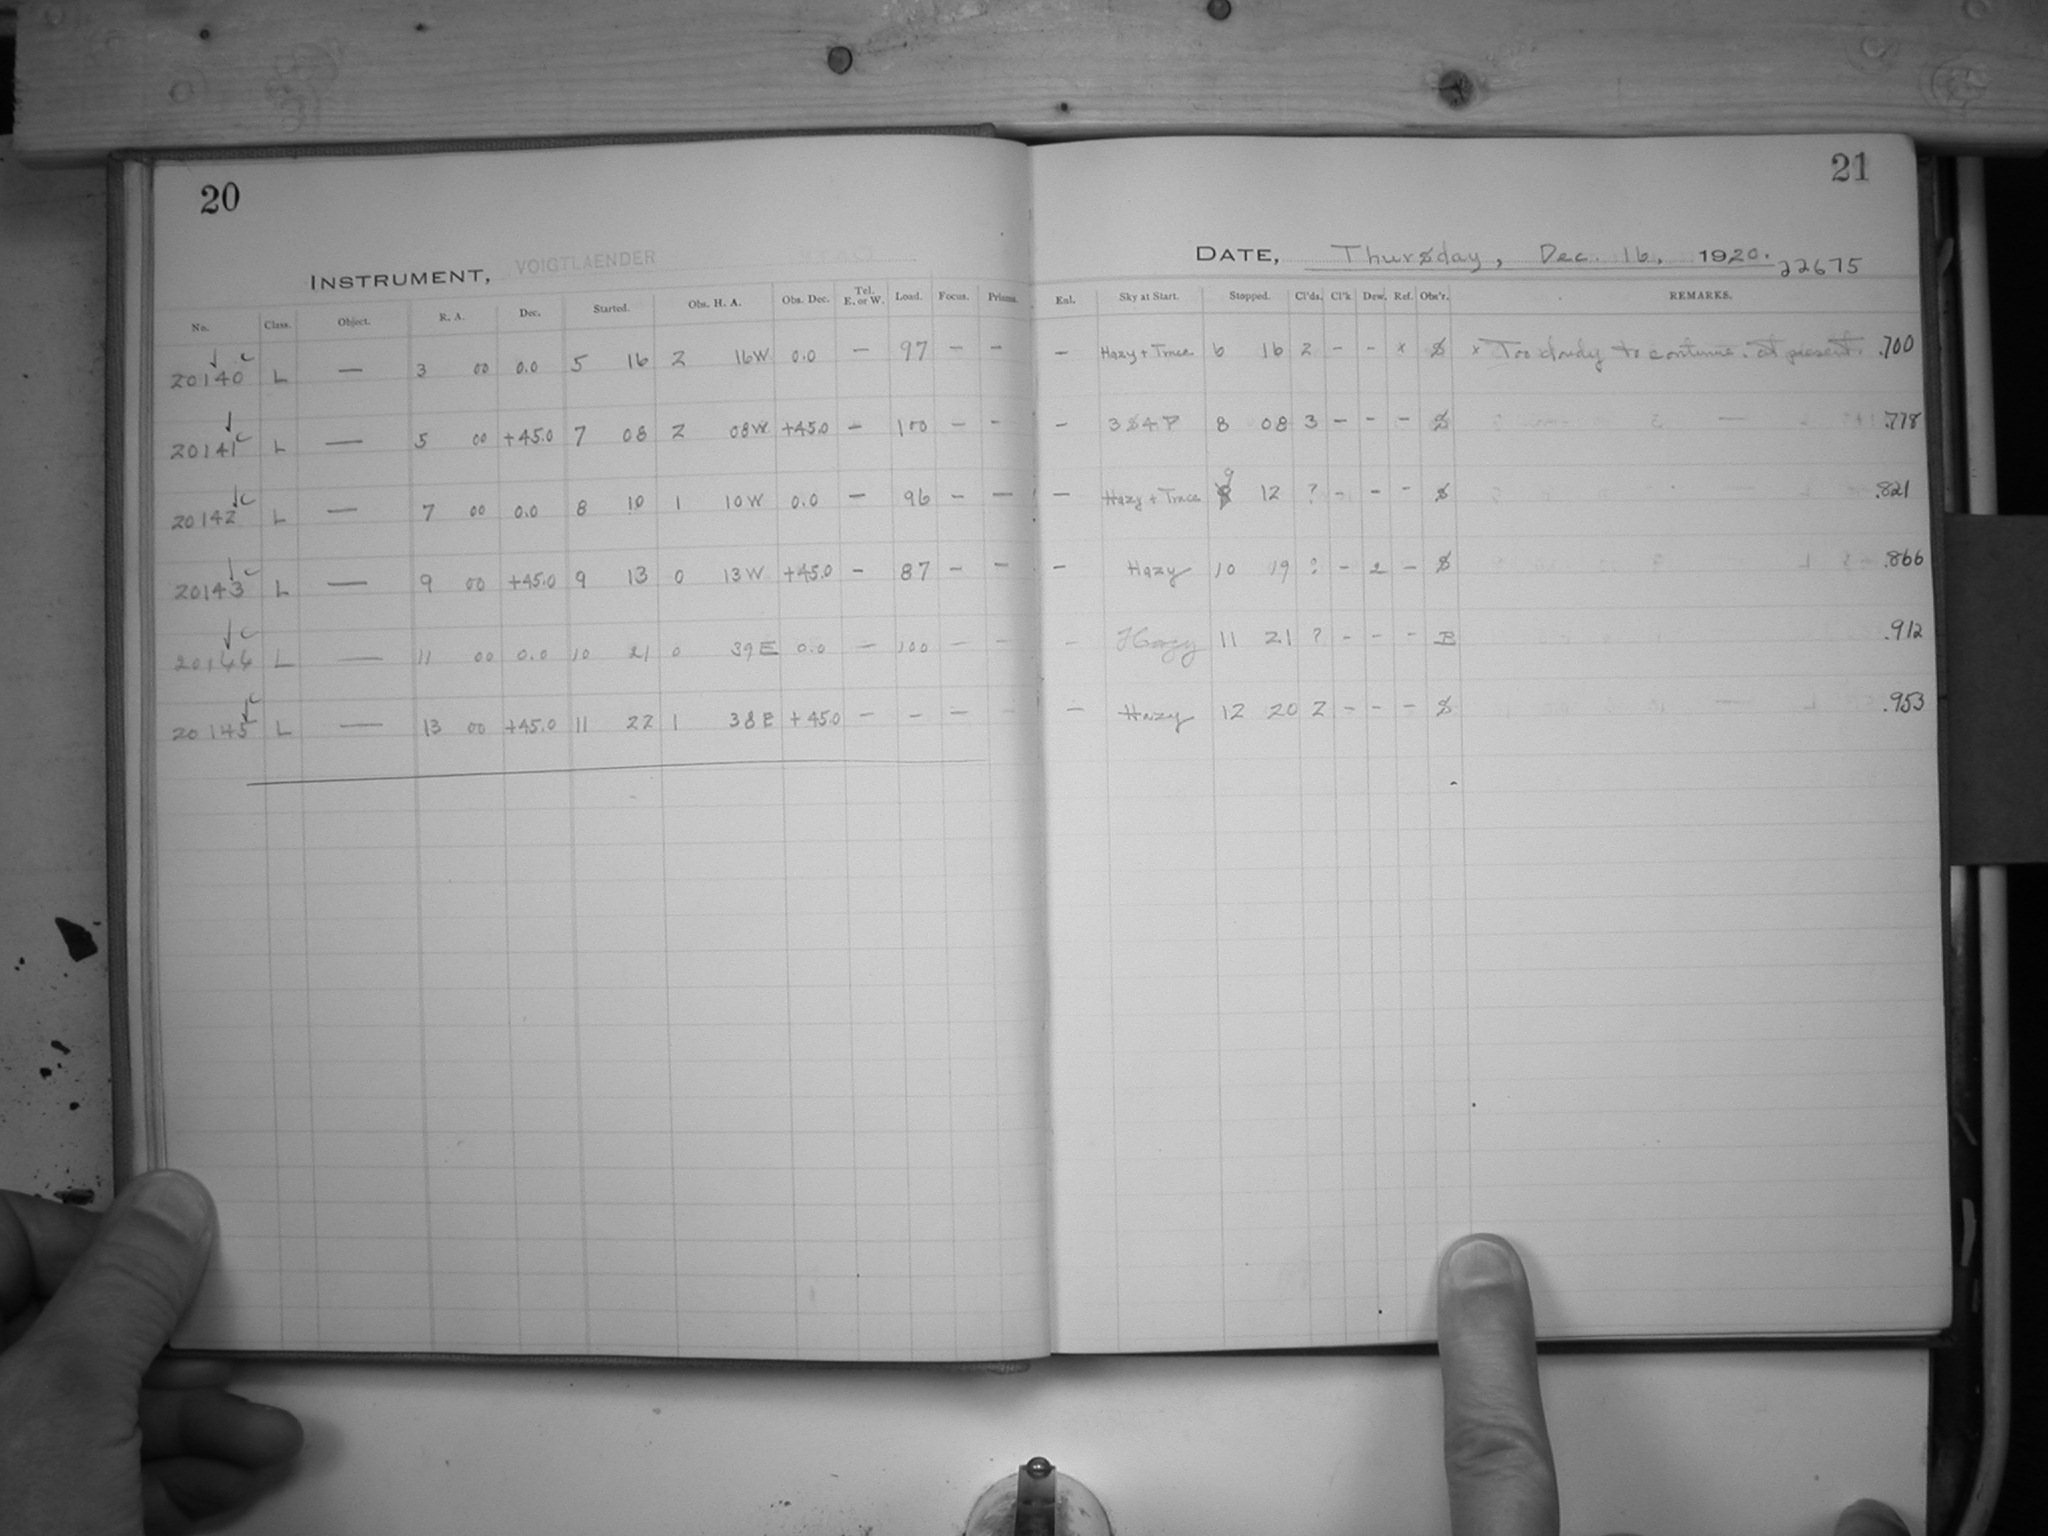 20 21
INSTRUMENT, VOIGTLAENDER DATE, Thursday, Dec. 16, 1920. 22675
No. Class. Object. R. A. Dec. Started. Obs. H. A. Obs. Dec. Tel. E. or W. Load. Focus. Prisms. Enl. Sky at Start. Stopped. Cl'ds. Cl'k Dew. Ref. Obs'r. REMARKS.
20140 L — 3 00 0.0 5 16 2 16W 0.0 — 97 — — — Hazy + Trace 6 16 2 - - x S x Too cloudy to continue. at present. .700
20141 L — 5 00 +45.0 7 08 2 08W +45.0 — 100 — — — 8 08 3 - - - S .778
20142 L — 7 00 0.0 8 10 1 10W 0.0 — 96 — — — Hazy + Trace 9 12 ? - - - S .821
20143 L — 9 00 +45.0 9 13 0 13W +45.0 — 87 - — — Hazy 10 19 ? - 2 - S .866
20144 L — 11 00 0.0 10 21 0 39E 0.0 — 100 — — - Hazy 11 21 ? - - - B .912
20145 L — 13 00 +45.0 11 22 1 38E +45.0 — - — — — Hazy 12 20 2 - - - S .953